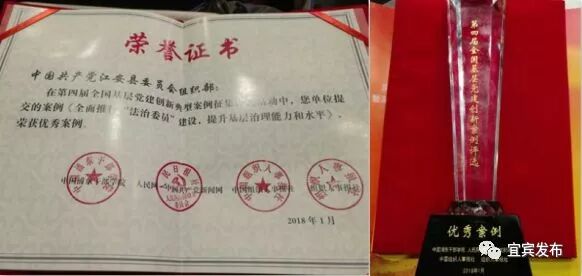 荣誉证书
中国共产党江安县委员会组织部：
在第四届全国基层党建创新典型案例征集活动中，您单位提
交的案例《全面推行“法治委员”建设，提升基层治理能力和水平》，
荣获优秀案例。
中国浦东干部学院 人民网—中国共产党新闻网 中国组织人事报社
2018年1月
第四届全国基层党建创新案例评选
优秀案例
中国浦东干部学院
中国组织人事报社
2018年1月
宜宾发布